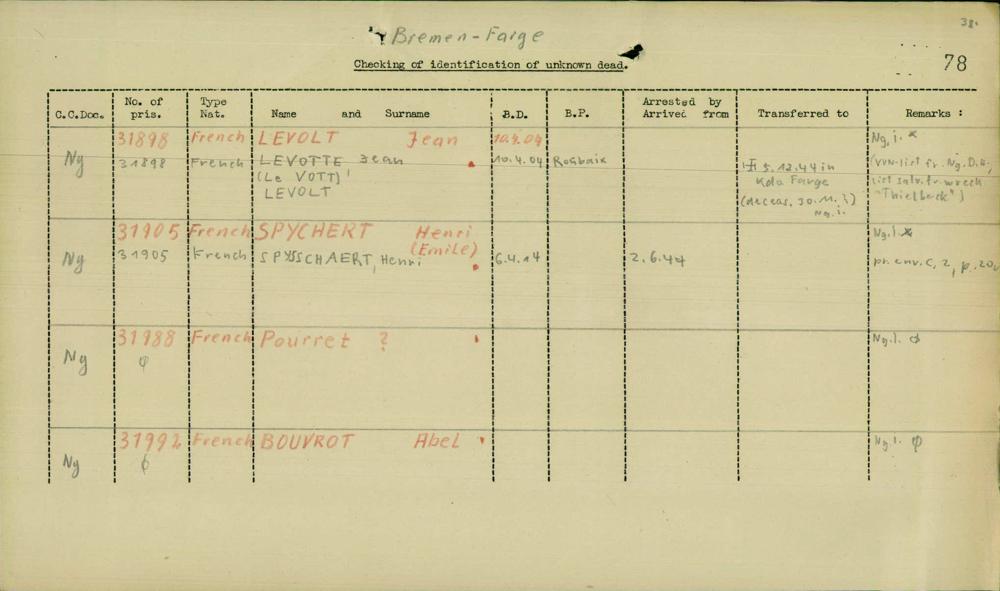 38.
Bremen-Farge
Checking of identification of unknown dead.
78
C.C.Doc. No. of pris. Type Nat. Name and Surname B.D. B.P. Arrested by Arrived from Transferred to Remarks :
Ng 31898 French LEVOLT Jean 10.4.04 Ng. i. *
31898 French LEVOTTE Jean 10.4.04 Roubaix 5.12.44 in (VVN-list fr. Ng. D.H;
(Le VOTT) Kdo Farge list salv. fr. wreck
LEVOLT (deceas. 30.11. ) "Thielbeck")
Ng. i.
Ng 31905 French SPYCHERT Henri Ng. i. *
(Emile)
31905 French SPYSSCHAERT, Henri 6.4.14 2.6.44 pr. env. C, 2, p. 20
Ng 31988 French Pourret ? Ng. i. φ
φ
Ng 31992 French BOUVROT Abel Ng. i. φ
φ